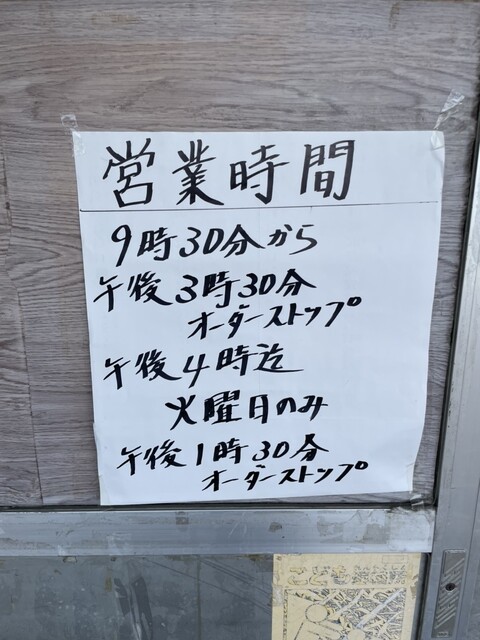 営業時間
9時30分から
午後3時30分
オーダーストップ
午後4時迄
火曜日のみ
午後1時30分
オーダーストップ